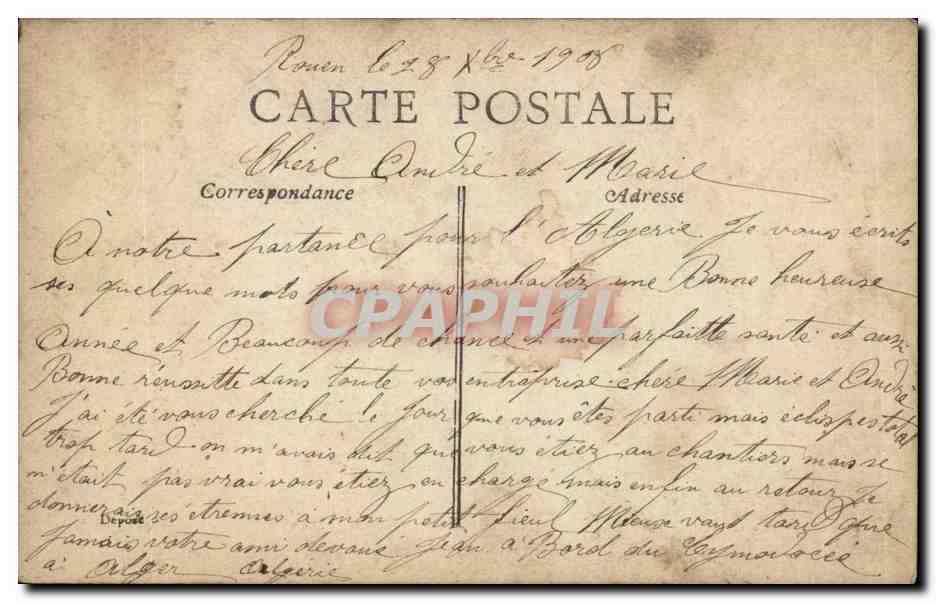 Rouen le 28 Xbre 1908
CARTE POSTALE
Chère André et Marie
Correspondance Adresse
A notre partance pour l'Algerie Je vous écrits
ses quelque mots pour vous souhaitez une Bonne heureuse
CPAPHIL
Année et Beaucoup de chance et une parfaitte santé et aussi
Bonne réussitte dans toute vos entreprise chère Marie et André
J'ai été vous cherché le jour que vous êtes parti mais éclispes total
trop tard on m'avais dit que vous étiez au chantiers mais se
n'était pas vrai vous étiez en charge mais enfin au retour Je
donnerais ses étrennes à mon petit fieul Mieux vaut tard que
Déposé
Jamais votre ami dévoué Jean à Bord du
à alger algerie